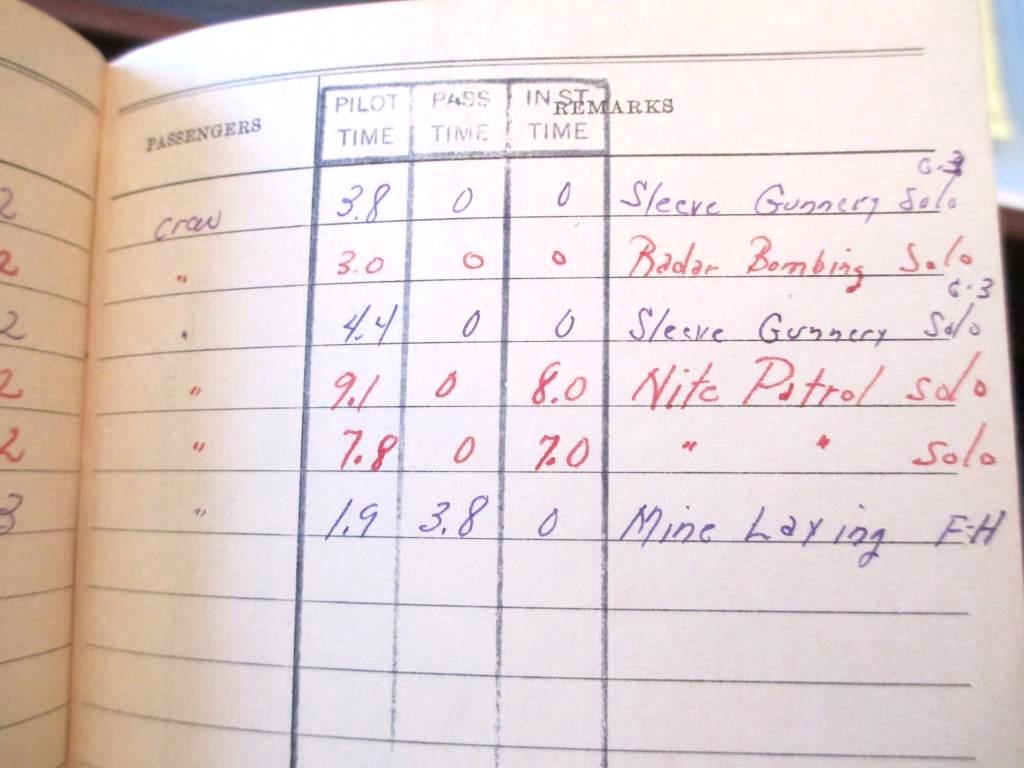 PASSENGERS PILOT TIME PASS TIME INST TIME REMARKS
G-3
2 crew 3.8 0 0 Sleeve Gunnery Solo
2 " 3.0 0 0 Radar Bombing Solo
G-3
2 " 4.4 0 0 Sleeve Gunnery Solo
2 " 9.1 0 8.0 Nite Patrol Solo
2 " 7.8 0 7.0 " " Solo
3 " 1.9 3.8 0 Mine Laying F-H